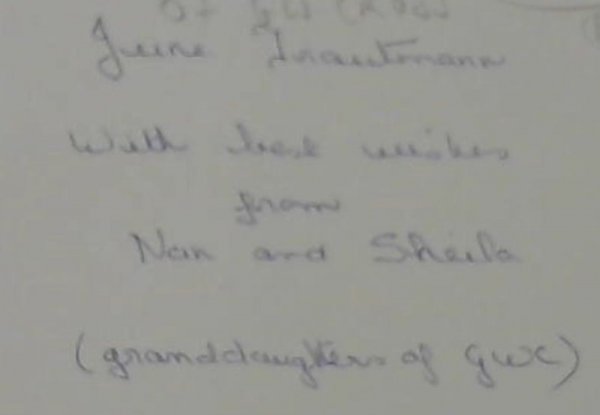 June Trautmann
With best wishes
from
Nan and Sheila
(granddaughters of GWC)